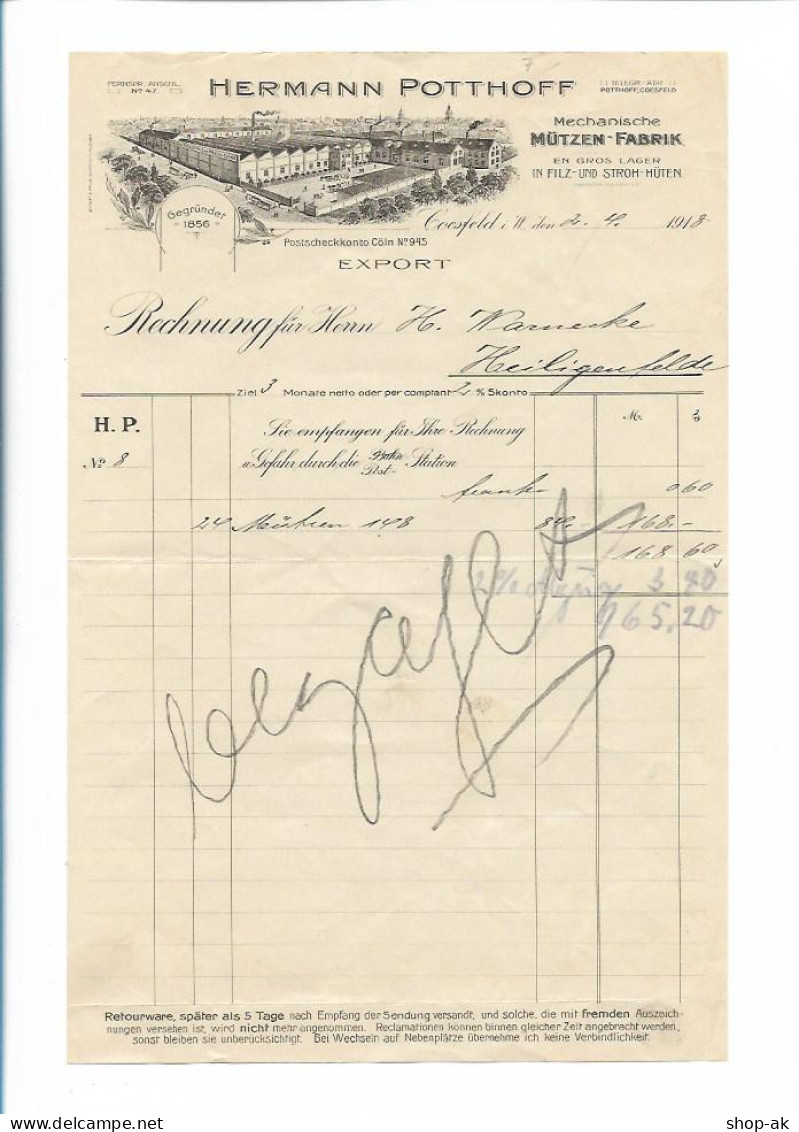 FERNSPR. ANSCHL.
No 47.
HERMANN POTTHOFF
TELEGR.-ADR.
POTTHOFF, COESFELD
Mechanische
MÜTZEN-FABRIK
EN GROS LAGER
IN FILZ- UND STROH-HÜTEN.
Gegründet
1856
Coesfeld i. W. den 2. 4. 1918
Postscheckkonto Cöln No 945
EXPORT
Rechnung für Herrn H. Warnecke
Heiligenfelde
Ziel 3 Monate netto oder per comptant 2 % Skonto
H. P.
M. ₰
Sie empfangen für Ihre Rechnung
u. Gefahr durch die Bahn Post- Station
No 8
frank 0 60
24 Mützen 148 84.- 168.-
168 60
2% 3 40
165.20
Retourware, später als 5 Tage nach Empfang der Sendung versandt, und solche, die mit fremden Auszeich-
nungen versehen ist, wird nicht mehr angenommen. Reclamationen können binnen gleicher Zeit angebracht werden,
sonst bleiben sie unberücksichtigt. Bei Wechseln auf Nebenplätze übernehme ich keine Verbindlichkeit.
shop-ak